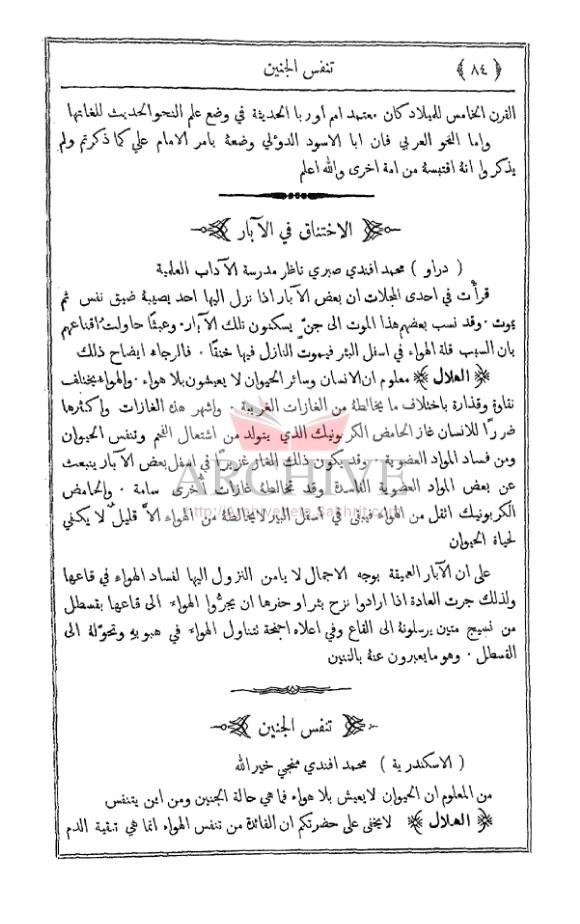 ﴿ ٨٤ ﴾ تنفس الجنين
القرن الخامس للميلاد كان معتمد امم اوربا الحديثة في وضع علم النحو الحديث للغاتها
واما النحو العربي فان ابا الاسود الدوئلي وضعهُ بامر الامام علي كما ذكرتم ولم
يذكروا انهُ اقتبسهُ من امة اخرى والله اعلم
الاختناق في الآبار
( دراو ) محمد افندي صبري ناظر مدرسة الآداب العلمية
قرأت في احدى المجلات ان بعض الآبار اذا نزل اليها احد يصيبهُ ضيق نفس ثم
يموت ٠ وقد نسب بعضهم هذا الموت الى جنّ يسكنون تلك الآبار ٠ وعبثًا حاولت اقناعهم
بان السبب قلة الهواء في اسفل البئر فيموت النازل فيها خنقًا ٠ فالرجاء ايضاح ذلك
﴿ الهلال ﴾ معلوم ان الانسان وسائر الحيوان لا يعيشون بلا هواء ٠ والهواء يختلف
نقاوة وقذارة باختلاف ما يخالطهُ من الغازات الغريبة ٠ واشهر هذه الغازات واكثرها
ضررًا للانسان غاز الحامض الكربونيك الذي يتولد من اشتعال الفحم وتنفس الحيوان
ومن فساد المواد العضوية ٠ وقد يكون ذلك الغاز غزيرًا في اسفل بعض الآبار ينبعث
عن بعض المواد العضوية الفاسدة وقد تخالطهُ غازات اخرى سامة ٠ والحامض
الكربونيك اثقل من الهواء فيبقى في اسفل البير لا يخالطهُ من الهواء الاَّ قليلٌ لا يكفي
لحياة الحيوان
على ان الآبار العميقة بوجه الاجمال لا يامن النزول اليها لفساد الهواء في قاعها
ولذلك جرت العادة اذا ارادوا نزح بئر او حفرها ان يجرُّوا الهواء الى قاعها بقسطل
من نسيج متين يرسلونهُ الى القاع وفي اعلاه اجنحة لتناول الهواء في هبوبهِ وتحوّلهُ الى
القسطل ٠ وهو ما يعبرون عنهُ بالتنين
تنفس الجنين
( الاسكندرية ) محمد افندي منجي خير الله
من المعلوم ان الحيوان لا يعيش بلا هواء فما هي حالة الجنين ومن اين يتنفس
﴿ الهلال ﴾ لا يخفى على حضرتكم ان الفائدة من تنفس الهواء انما هي تنقية الدم
ARCHIVE
http://Archivebeta.Sakhrit.com